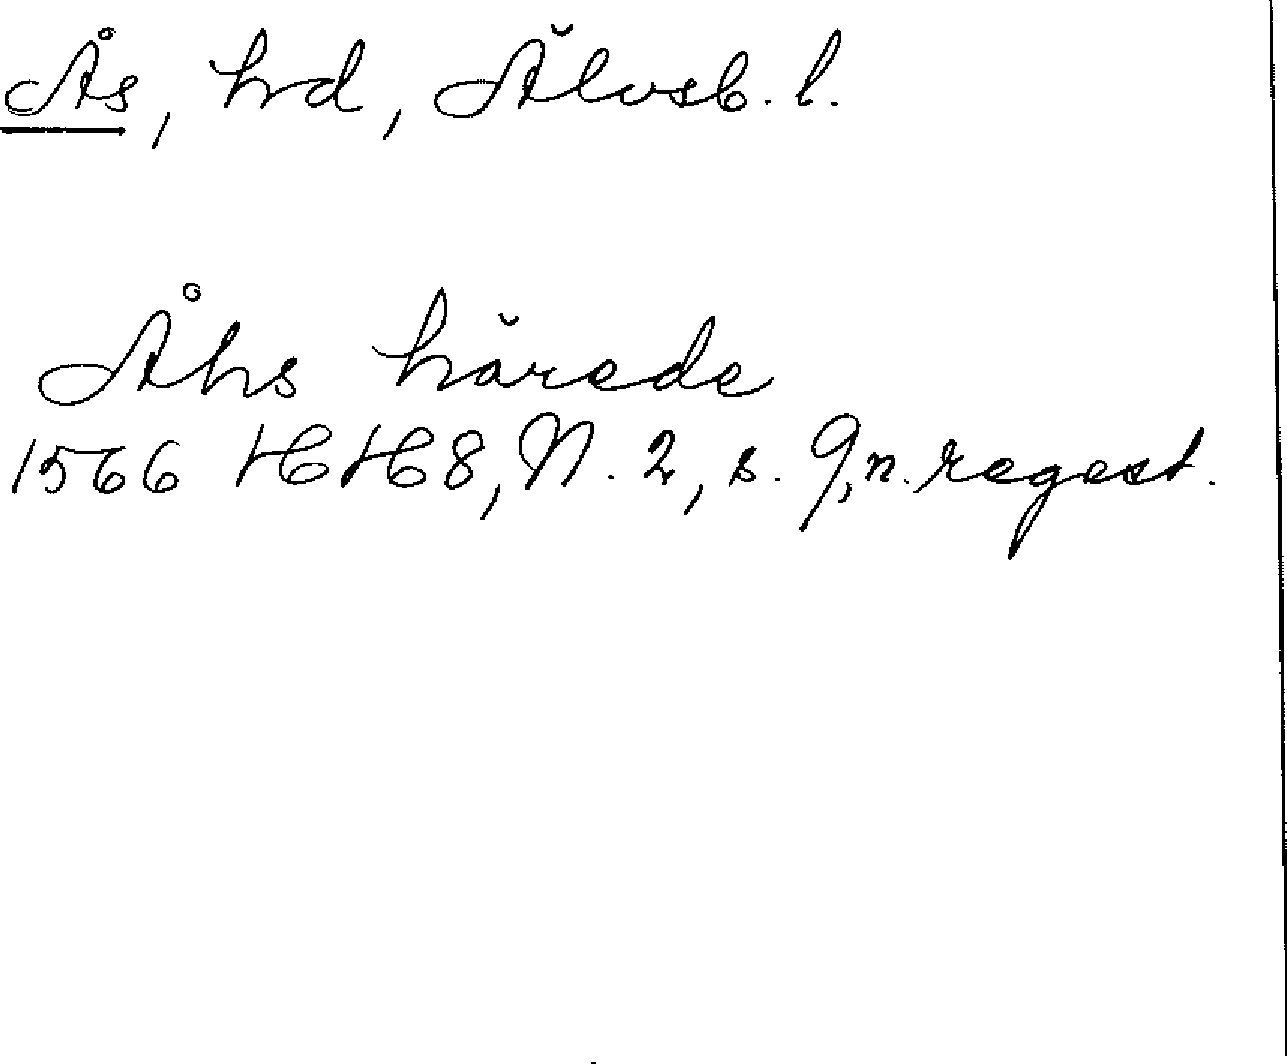 Ås, hd, Älvsb. l.
Åhs härede
1566 HH 8, N. 2, s. 9, n. regest.